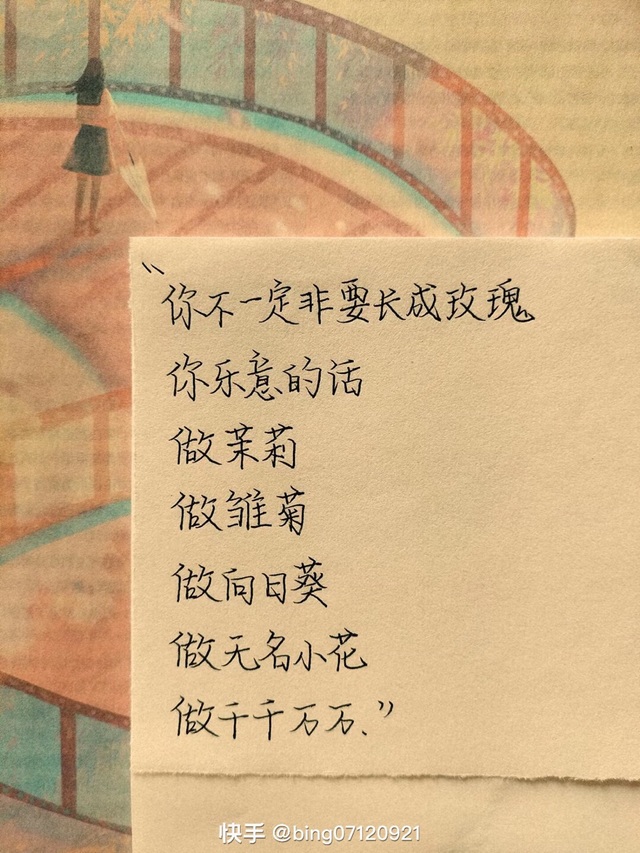 “你不一定非要长成玫瑰
你乐意的话
做茉莉
做雏菊
做向日葵
做无名小花
做千千万万、”
快手 @bing07120921